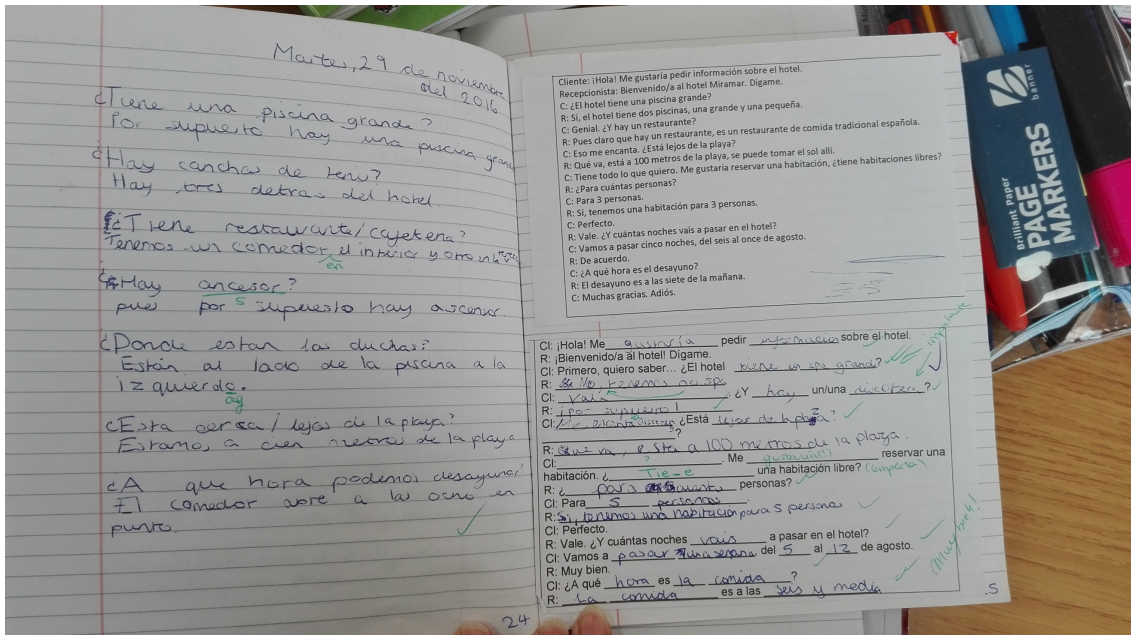 Martes, 29 de noviembre
del 2016
¿Tiene una piscina grande?
Por supuesto hay una piscina grand
¿Hay canchas de tenis?
Hay tres detras del hotel.
¿Tiene restaurante/cafeteria?
Tenemos un comedor el interior y otro
en
¿Hay ancesor?
s
pues por supuesto hay ascensor.
¿Donde estan las duchas?
Están al lado de la piscina a la
izquierdo.
¿Esta cersa/lejos de la playa?
Estamos a cien metros de la playa
¿A que hora podemos desayunar?
El comedor abre a las ocho en
punto.
24
Cliente: ¡Hola! Me gustaría pedir información sobre el hotel.
Recepcionista: Bienvenido/a al hotel Miramar. Dígame.
C: ¿El hotel tiene una piscina grande?
R: Sí, el hotel tiene dos piscinas, una grande y una pequeña.
C: Genial. ¿Y hay un restaurante?
R: Pues claro que hay un restaurante, es un restaurante de comida tradicional española.
C: Eso me encanta. ¿Está lejos de la playa?
R: Qué va, está a 100 metros de la playa, se puede tomar el sol allí.
C: Tiene todo lo que quiero. Me gustaría reservar una habitación, ¿tiene habitaciones libres?
R: ¿Para cuántas personas?
C: Para 3 personas.
R: Sí, tenemos una habitación para 3 personas.
C: Perfecto.
R: Vale. ¿Y cuántas noches vais a pasar en el hotel?
C: Vamos a pasar cinco noches, del seis al once de agosto.
R: De acuerdo.
C: ¿A qué hora es el desayuno?
R: El desayuno es a las siete de la mañana.
C: Muchas gracias. Adiós.
Cl: ¡Hola! Me gustaría pedir informacion sobre el hotel.
R: ¡Bienvenido/a al hotel! Dígame.
Cl: Primero, quiero saber... ¿El hotel tiene un spa grand?
R: No, tenemos no spa
Cl: Vais ¿Y hay un/una discoteca?
R: ¡por supuesto!
Cl: Me encanta ¿Está lejos de la plaza?
?
R: Que va, esta a 100 metros de la plaza.
Cl: ? . Me gustaria reservar una
habitación. ¿ Tie-e una habitación libre? (completa)
R: ¿ para cuants personas?
Cl: Para 5 personas.
R: Si, tenemos una habitación para 5 personas
Cl: Perfecto.
R: Vale. ¿Y cuántas noches vais a pasar en el hotel?
Cl: Vamos a pasar una semana del 5 al 12 de agosto.
R: Muy bien.
Cl: ¿A qué hora es la comida?
R: La comida es a las seis y media
importante
¡Muy bien!
.5
Brilliant Paper
PAGE
MARKERS
banner